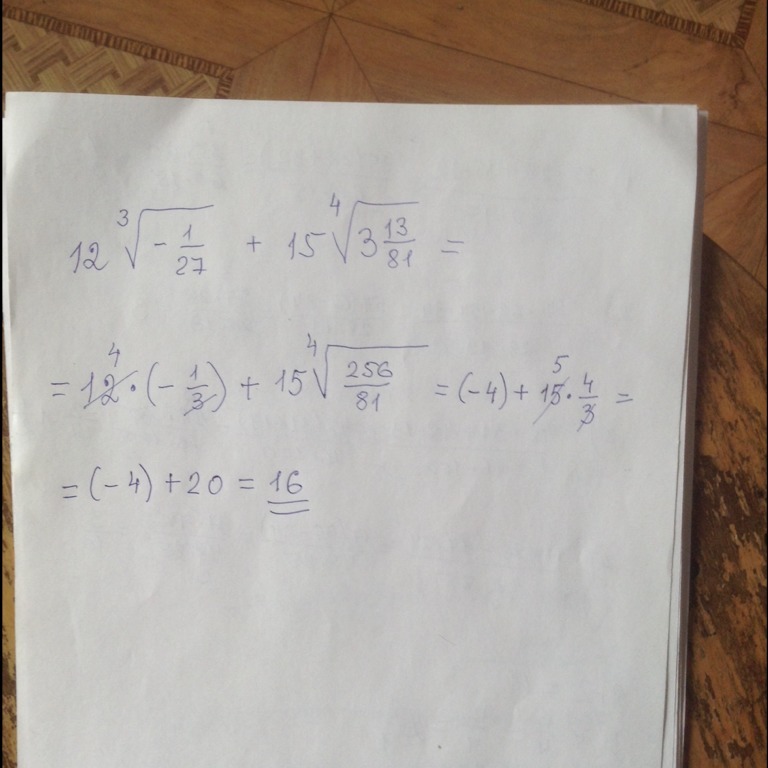 12 ∛(-1/27) + 15 ∜(3 13/81) =
= 12 4 · (- 1/3) + 15 ∜(256/81) = (-4) + 15 5 · 4/3 =
= (-4) + 20 = 16